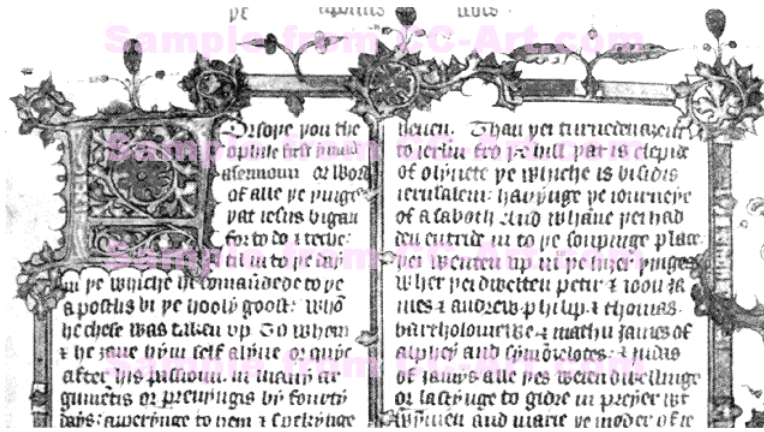 ye
Sample from CC-Art.com
Forsoþe you the
ophile first y maad
a sermoun or word
of alle þe þinges
þat iesus bigan
for to do & teche:
til in to þe day
in þe whiche he comaũdede to þe
apostlis bi þe hooly goost: whõ
he chese was taken up To whom
& he ȝaue hým self alýue or quyc
after his passioun. in many ar
gumẽtis or preuyngis bý fourtý
days: apperynge to hem & spekynge
Sample from CC-Art.com
heuen. Than þei turneden aȝein
to ierlm fro þe hill þat is clepid
of olýuete þe whiche is bisidis
ierusalem: hauynge þe iourneye
of a saboth And whane þei had
den entride in to þe soupinge place.
þei wenten vp in þe hiȝer þinges
wher þei dwelten petir & ioon ja
mes & andrew philip & thomas.
bartholomewe & mathu james of
alphey and symõ zelotes: & judas
of jamys alle þes weren dwellinge
or lastynge to gidre in preyer wt
wymmen and marie þe moder of ie
Sample from CC-Art.com
Sample from CC-Art.com